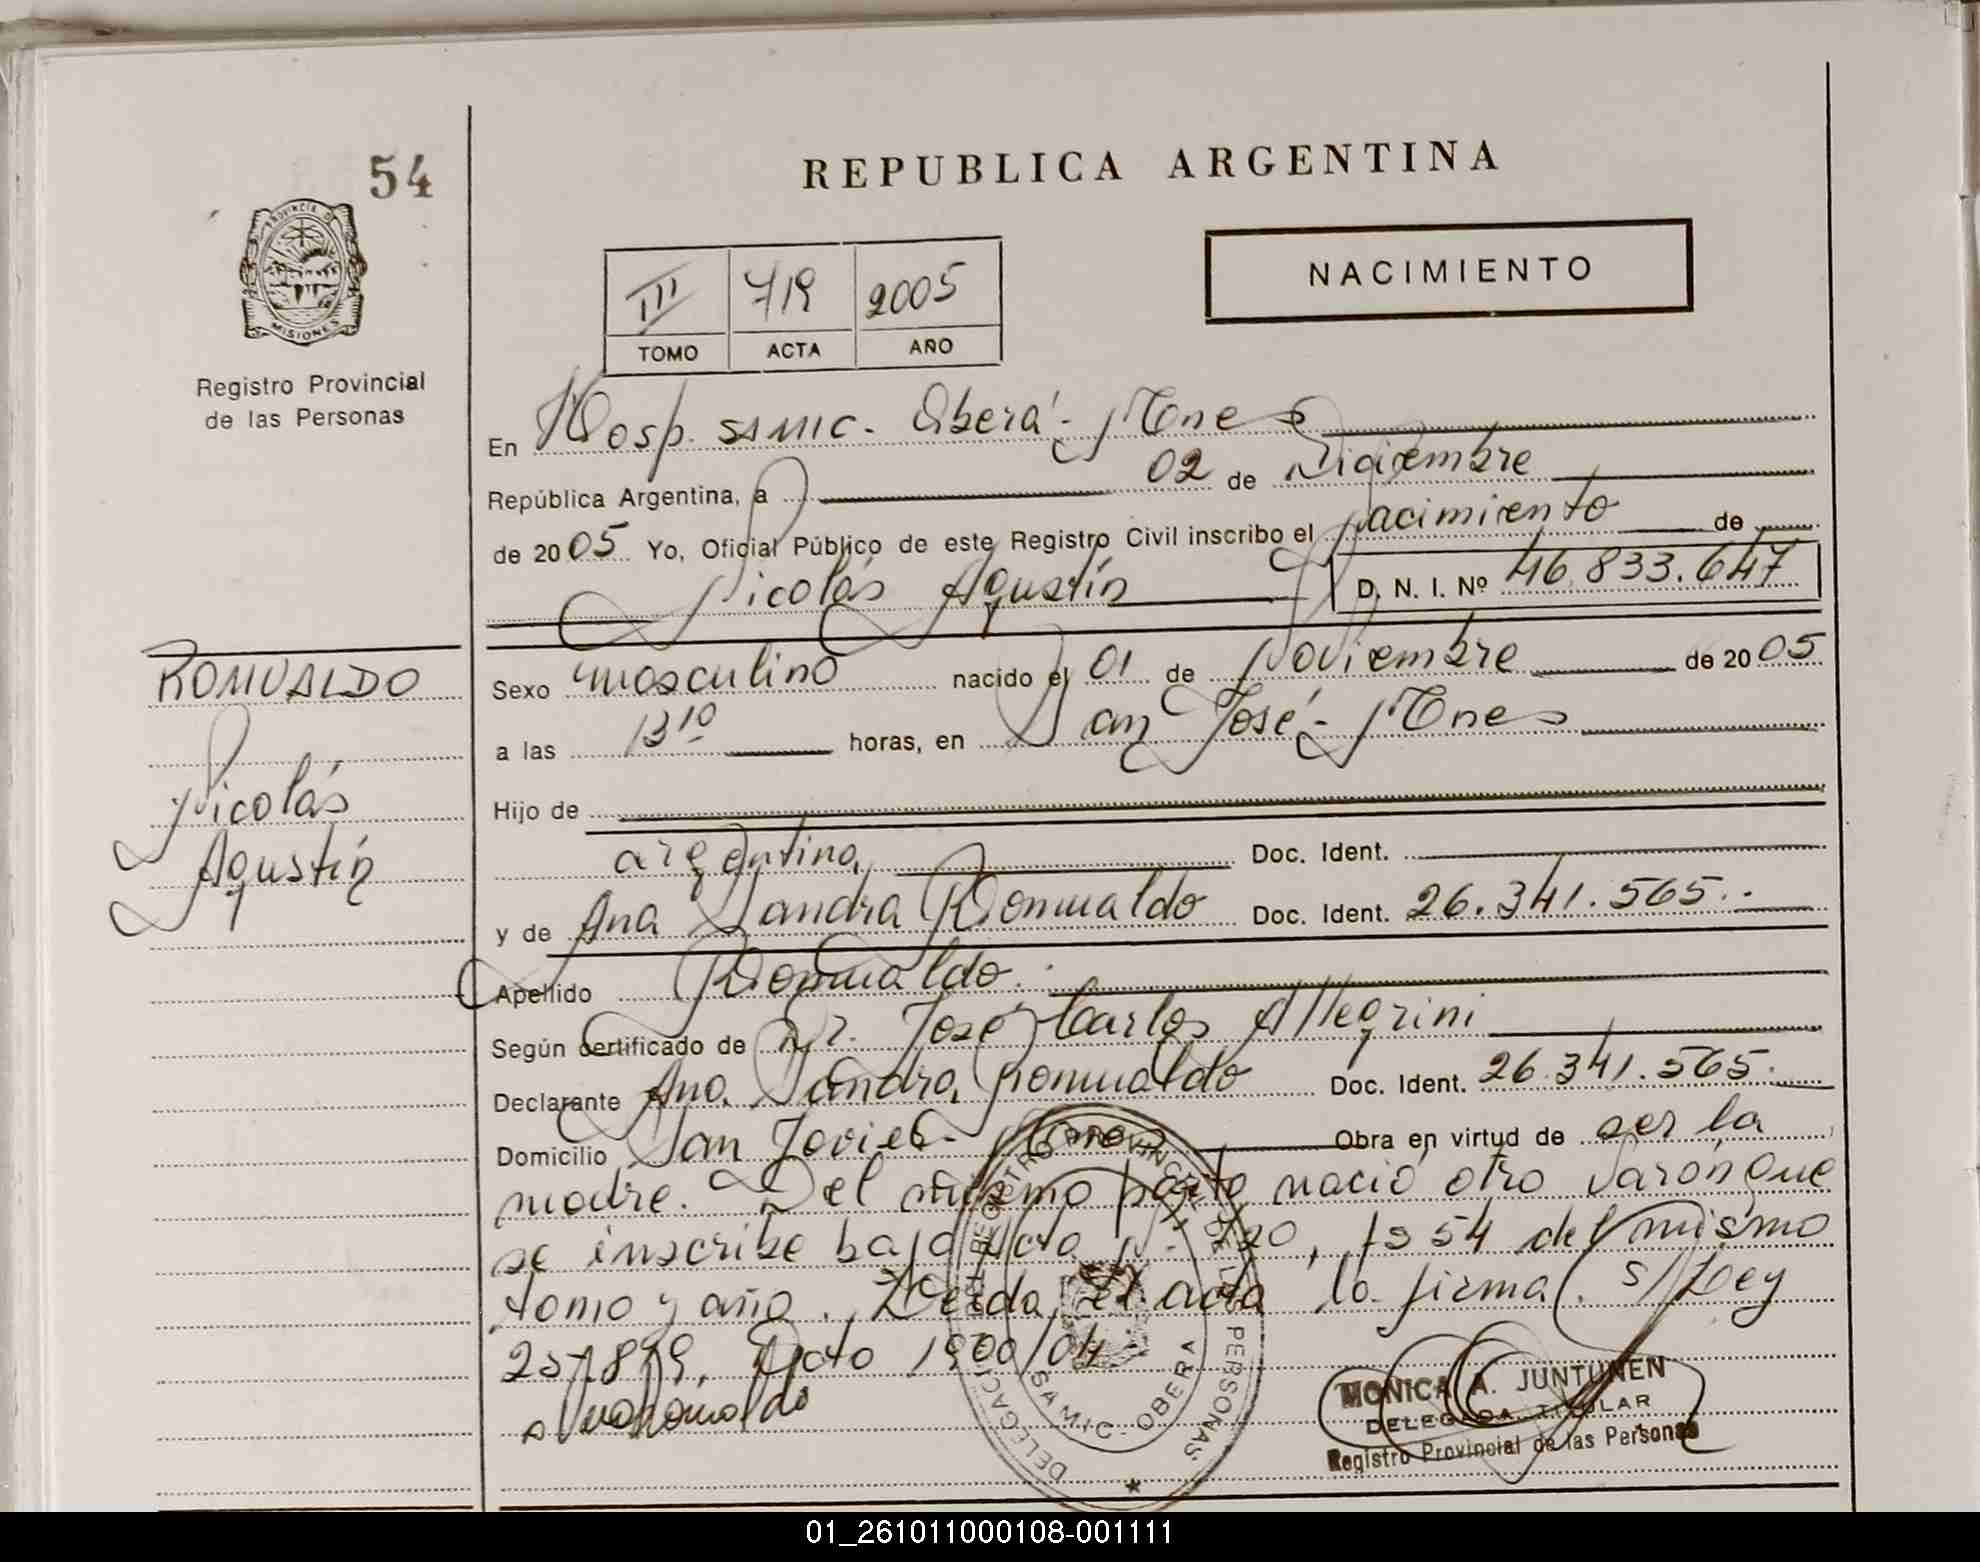 54
REPUBLICA ARGENTINA
PROVINCIA D
MISIONES
Registro Provincial
de las Personas
III 719 2005
TOMO ACTA AÑO
NACIMIENTO
En Hosp. SAMIC. Oberá - Mnes
República Argentina, a 02 de Diciembre
de 2005 Yo, Oficial Público de este Registro Civil inscribo el nacimiento de
Nicolás Agustín D. N. I. Nº 46.833.647
ROMUALDO
Nicolás
Agustín
Sexo masculino nacido el 01 de Noviembre de 2005
a las 13¹⁰ horas, en San José - Mnes
Hijo de
argentina, Doc. Ident.
y de Ana Sandra Romualdo Doc. Ident. 26.341.565.-
Apellido Romualdo.
Según certificado de Dr. José Carlos Allegrini
Declarante Ana Sandra Romualdo Doc. Ident. 26.341.565.
Domicilio San Javier - Mnes Obra en virtud de ser la
madre. Del mismo parto nació otro varón que
se inscribe bajo acta Nº 720, fs 54 del mismo
tomo y año. Leída el acta la firma. S/Ley
25.819, Dcto 1900/04
Romualdo
DELEGACION REGISTRO PROVINCIAL DE LAS PERSONAS
SAMIC OBERA
MONICA A. JUNTUNEN
DELEGADA TITULAR
Registro Provincial de las Personas
01_261011000108-001111